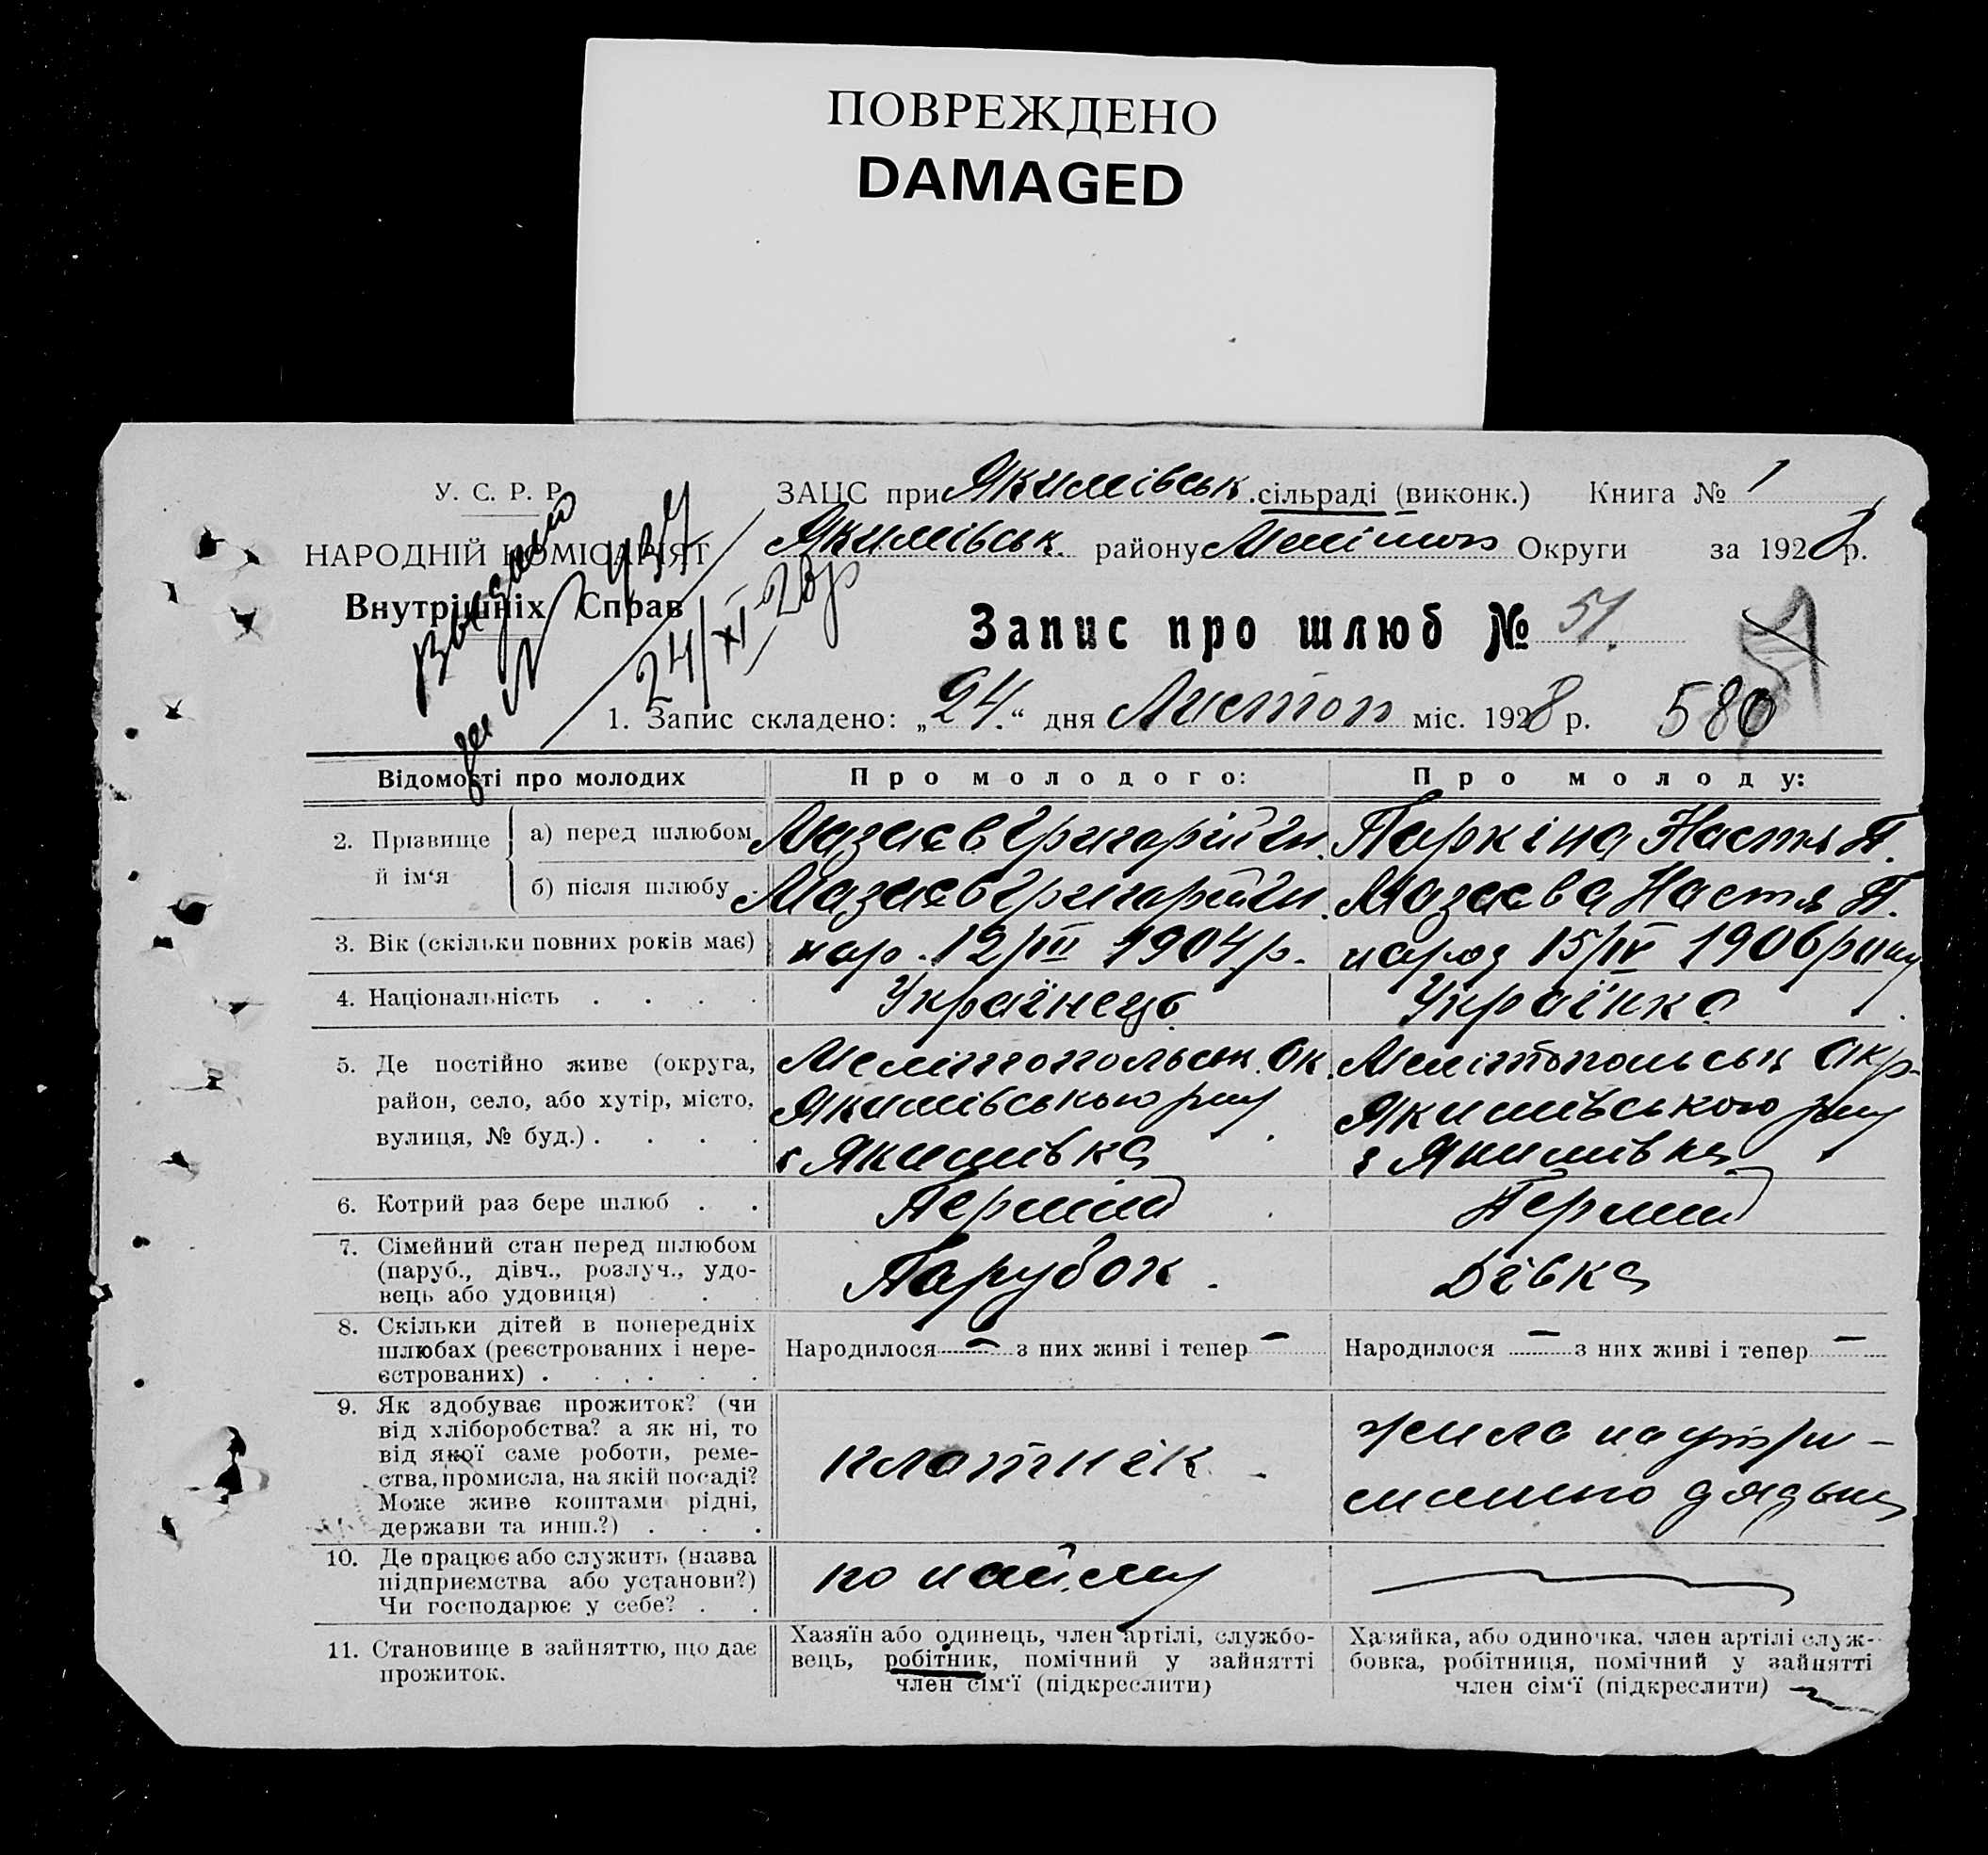 ПОВРЕЖДЕНО
DAMAGED
У. С. Р. Р.
НАРОДНІЙ КОМІСАРІЯТ
Внутрішніх Справ
Видано
за №
24/XI-28р
ЗАЦС при Якимівськ. сільраді (виконк.) Книга № 1
Якимівськ. району Мелітоп Округи за 1928 р.
Запис про шлюб № 51.
1. Запис складено: „24.“ дня Листоп міс. 1928 р. 580
Відомості про молодих Про молодого: Про молоду:
2. Прізвище й ім‘я
а) перед шлюбом Мазаєв Григорій Ін. Паркіна Настя П.
б) після шлюбу Мазаєв Григорій Ін. Мазаєва Настя П.
3. Вік (скільки повних років має) нар. 12/III 1904 р. народ 15/IV 1906 року
4. Національність . . . . Українець Українка
5. Де постійно живе (округа,
район, село, або хутір, місто,
вулиця, № буд.) . . . .
Мелітопольськ. Ок.
Якимівського р-ну
с Якимівка
Мелітопольськ Окр.
Якимівського р-ну
с Якимівка
6. Котрий раз бере шлюб . . Перший Перший
7. Сімейний стан перед шлюбом
(паруб., дівч., розлуч., удо-
вець або удовиця) . .
Парубок. Дівка
8. Скільки дітей в попередніх
шлюбах (реєстрованих і нере-
єстрованих) . . . . . .
Народилося — з них живі і тепер —
Народилося — з них живі і тепер —
9. Як здобуває прожиток? (чи
від хліборобства? а як ні, то
від якої саме роботи, реме-
ства, промисла, на якій посаді?
Може живе коштами рідні,
держави та инш.?) . . .
плотнік
жила на утри-
манню дядька
10. Де працює або служить (назва
підприємства або установи?)
Чи господарює у себе? . .
по найму
11. Становище в зайняттю, що дає
прожиток.
Хазяїн або одинець, член артілі, службо-
вець, робітник, помічний у зайнятті
член сім‘ї (підкреслити)
Хазяйка, або одиночка, член артілі служ-
бовка, робітниця, помічний у зайнятті
член сім‘ї (підкреслити)